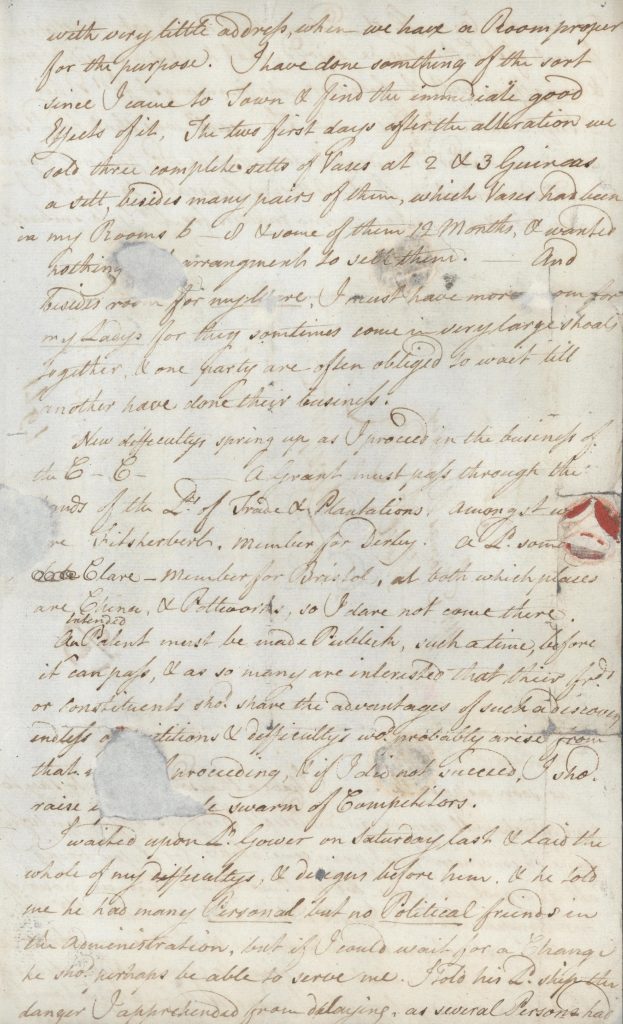 with very little address, when we have a Room proper
for the purpose. I have done somthing of the sort
since I came to Town & find the immediate good
effects of it, The two first days after the alteration we
sold three complete setts of Vases at 2 & 3 Guineas
a sett, besides many pairs of them, which Vases had been
in my Rooms 6 – 8 & some of them 12 Months, & wanted
nothing arrangment to sell them. — And
besides room for my Ware, I must have more for
my Ladys for they somtimes come in very large shoals
together, & one party are often obliged to wait till
another have done their business.
New difficultys spring up as I proceed in the business of
the C – C – A Grant must pass through the
hands of the Lds of Trade & Plantations, amongst
Fitsherbert, member for Derby. a Ld. some
Clare – Member for Bristol, at both which places
are China, & Pottworks, so I dare not come there.
An intended Patent must be made Publick, such a time, before
it can pass, & as so many are interested that their frds
or constituents shod. share the advantages of such a discovery
endless & difficultys wod. probably arise from
that proceeding, & if I did not succeed, I shod.
raise swarm of Competitors.
I waited upon Ld. Gower on Saturday last & laid the
whole of my difficultys, & designs before him, & he told
me he had many Personal but no Political friends in
the Administration, but if I could wait for a Change
he shod. perhaps be able to serve me. I told his Ldship the
danger I apprehended from delaying, as several Persons had